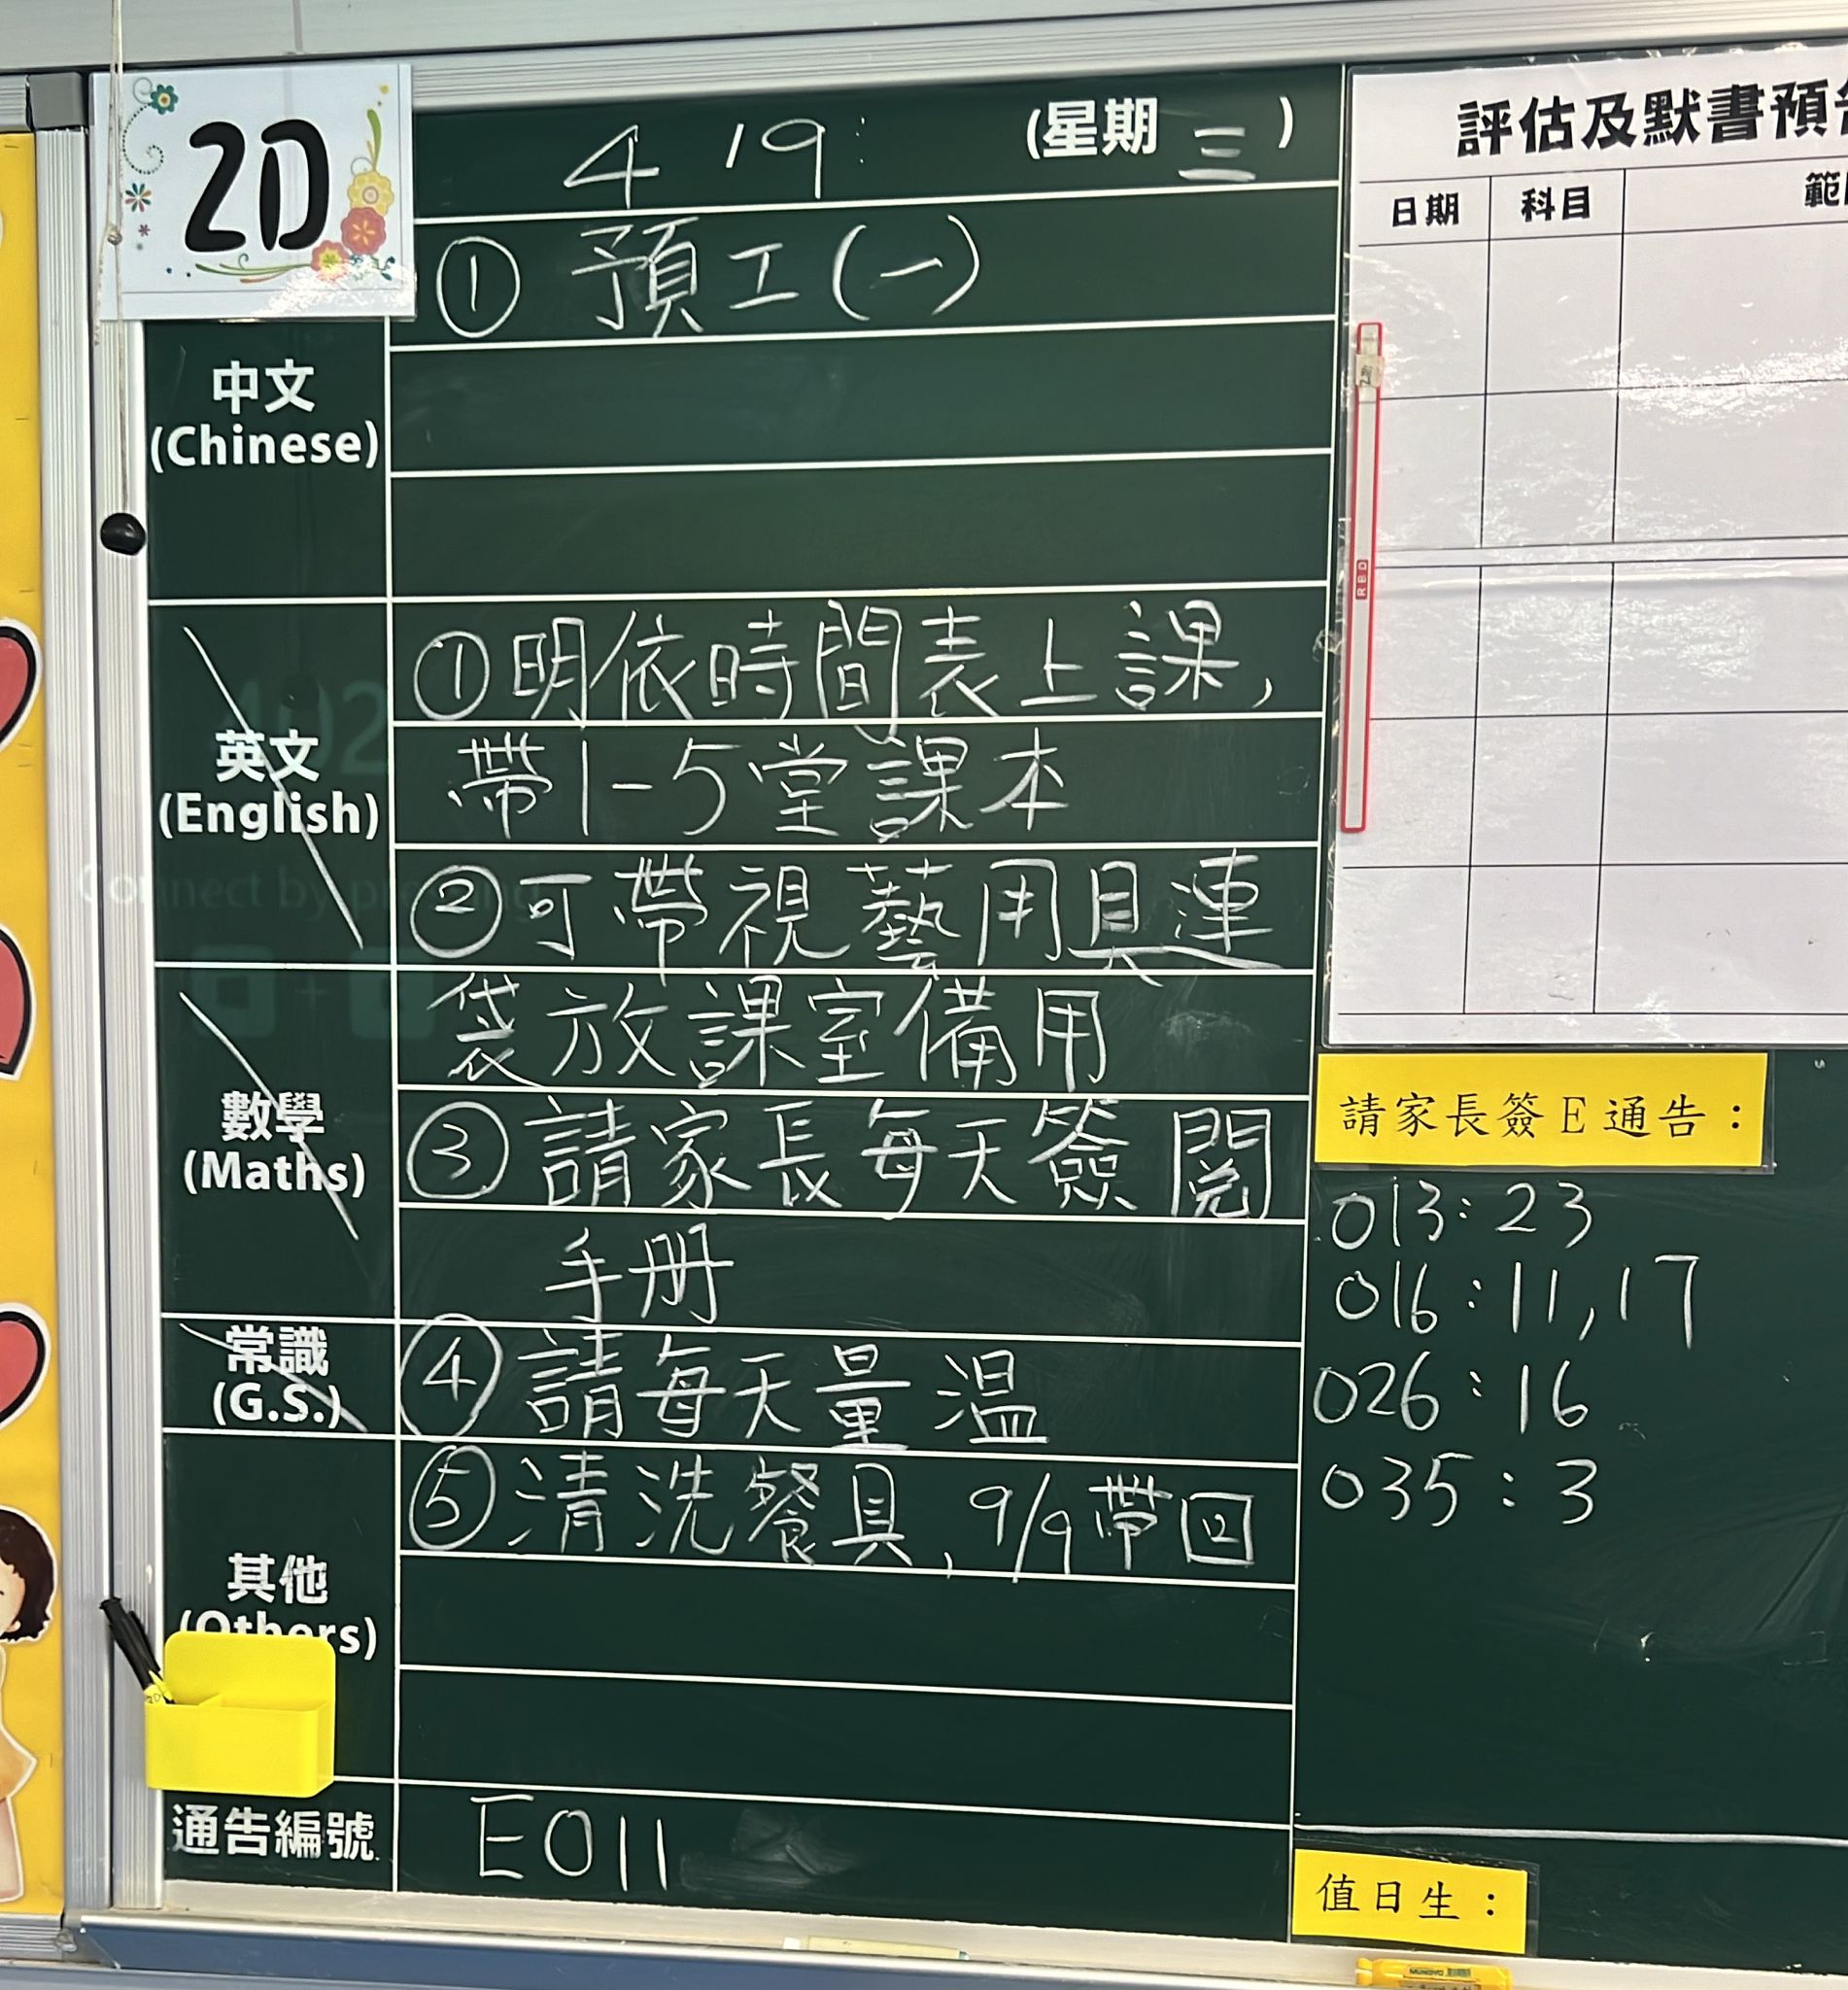 2D
4 / 9 (星期三)
① 預工(一)
中文
(Chinese)
英文
(English)
① 明依時間表上課,
帶1-5堂課本
② 可帶視藝用具連
袋放課室備用
數學
(Maths)
③ 請家長每天簽閱
手冊
常識
(G.S.)
④ 請每天量温
其他
(Others)
⑤ 清洗餐具, 9/9帶回
通告編號
E011
評估及默書預
日期 科目
RBD
請家長簽E通告:
013: 23
016: 11, 17
026: 16
035: 3
值日生:
MUNGYO